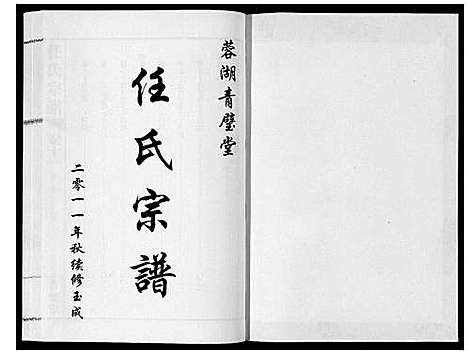 蓉湖青璧堂
任氏宗譜
二零一一年秋续修玉成